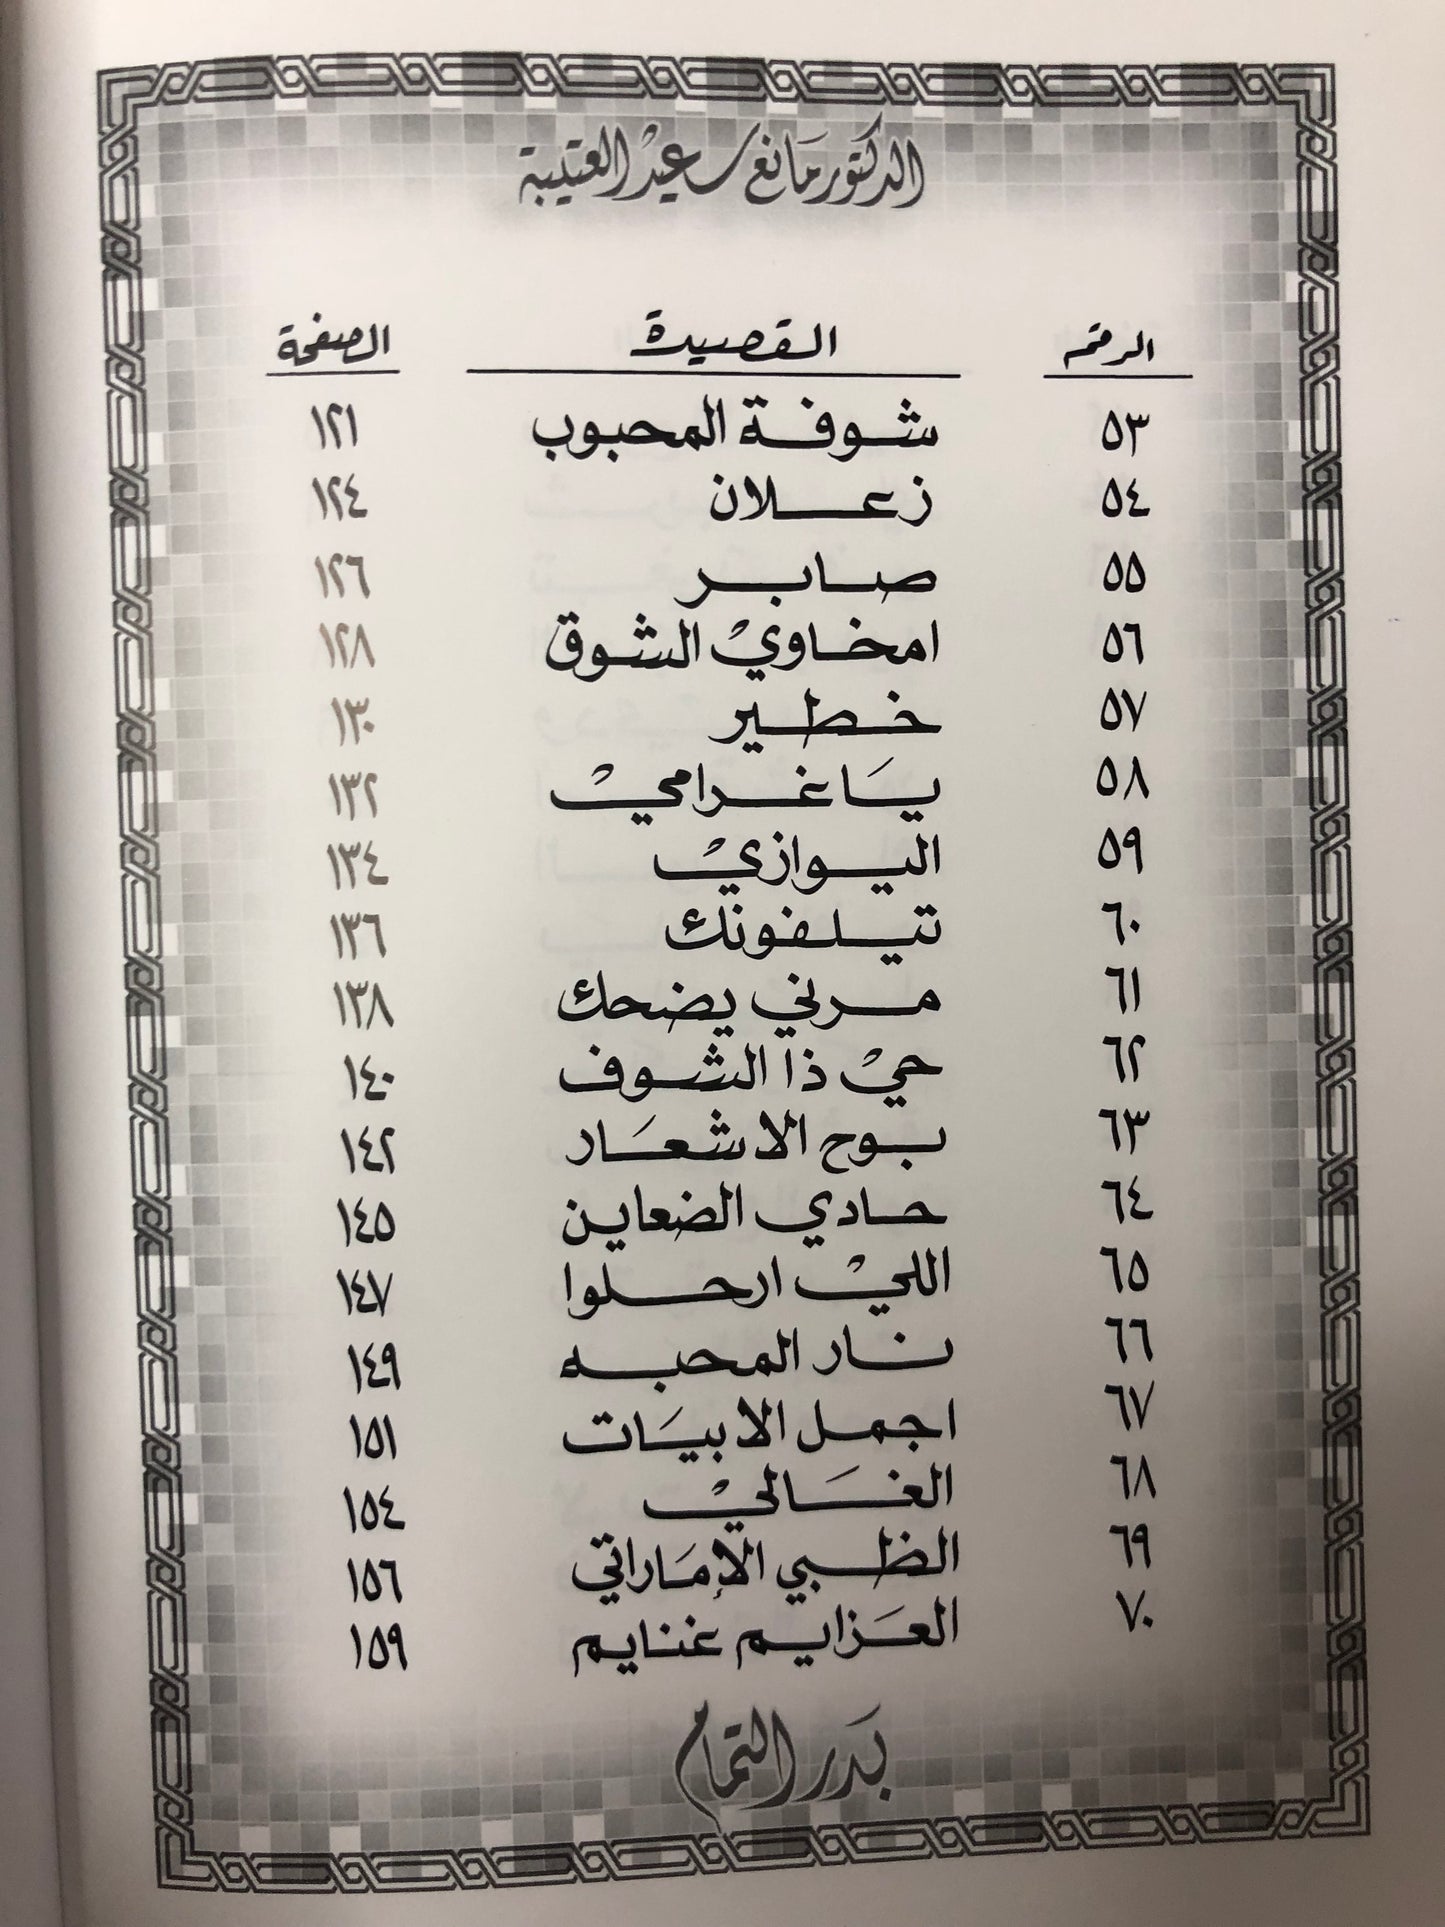 الدكتور مانع سعيد العتيبة
الرقم القصيدة الصفحة
٥٣ شوفة المحبوب ١٢١
٥٤ زعلان ١٢٤
٥٥ صابر ١٢٦
٥٦ امخاوي الشوق ١٢٨
٥٧ خطير ١٣٠
٥٨ يا غرامي ١٣٢
٥٩ اليوازي ١٣٤
٦٠ تيلفونك ١٣٦
٦١ مرني يضحك ١٣٨
٦٢ حي ذا الشوف ١٤٠
٦٣ بوح الاشعار ١٤٢
٦٤ حادي الضعاين ١٤٥
٦٥ اللي ارحلوا ١٤٧
٦٦ نار المحبه ١٤٩
٦٧ اجمل الابيات ١٥١
٦٨ الغالي ١٥٤
٦٩ الظبي الإماراتي ١٥٦
٧٠ العزايم غنايم ١٥٩
بدر التمام